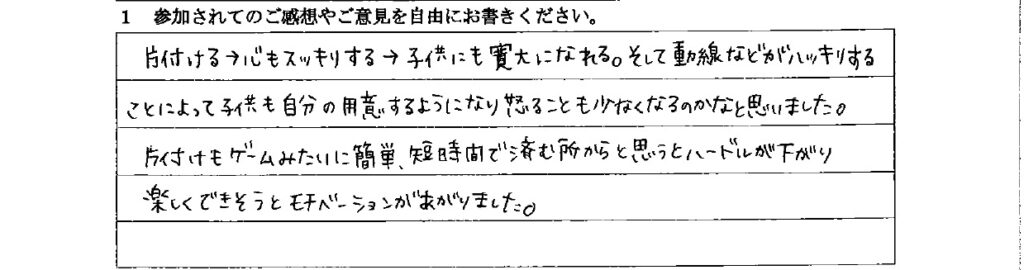 1 参加されてのご感想やご意見を自由にお書きください。
片付ける→心もスッキリする→子供にも寛大になれる。そして動線などがハッキリする
ことによって子供も自分の用意するようになり怒ることも少なくなるのかなと思いました。
片付けもゲームみたいに簡単、短時間で済む所からと思うとハードルが下がり
楽しくできそうとモチベーションがあがりました。